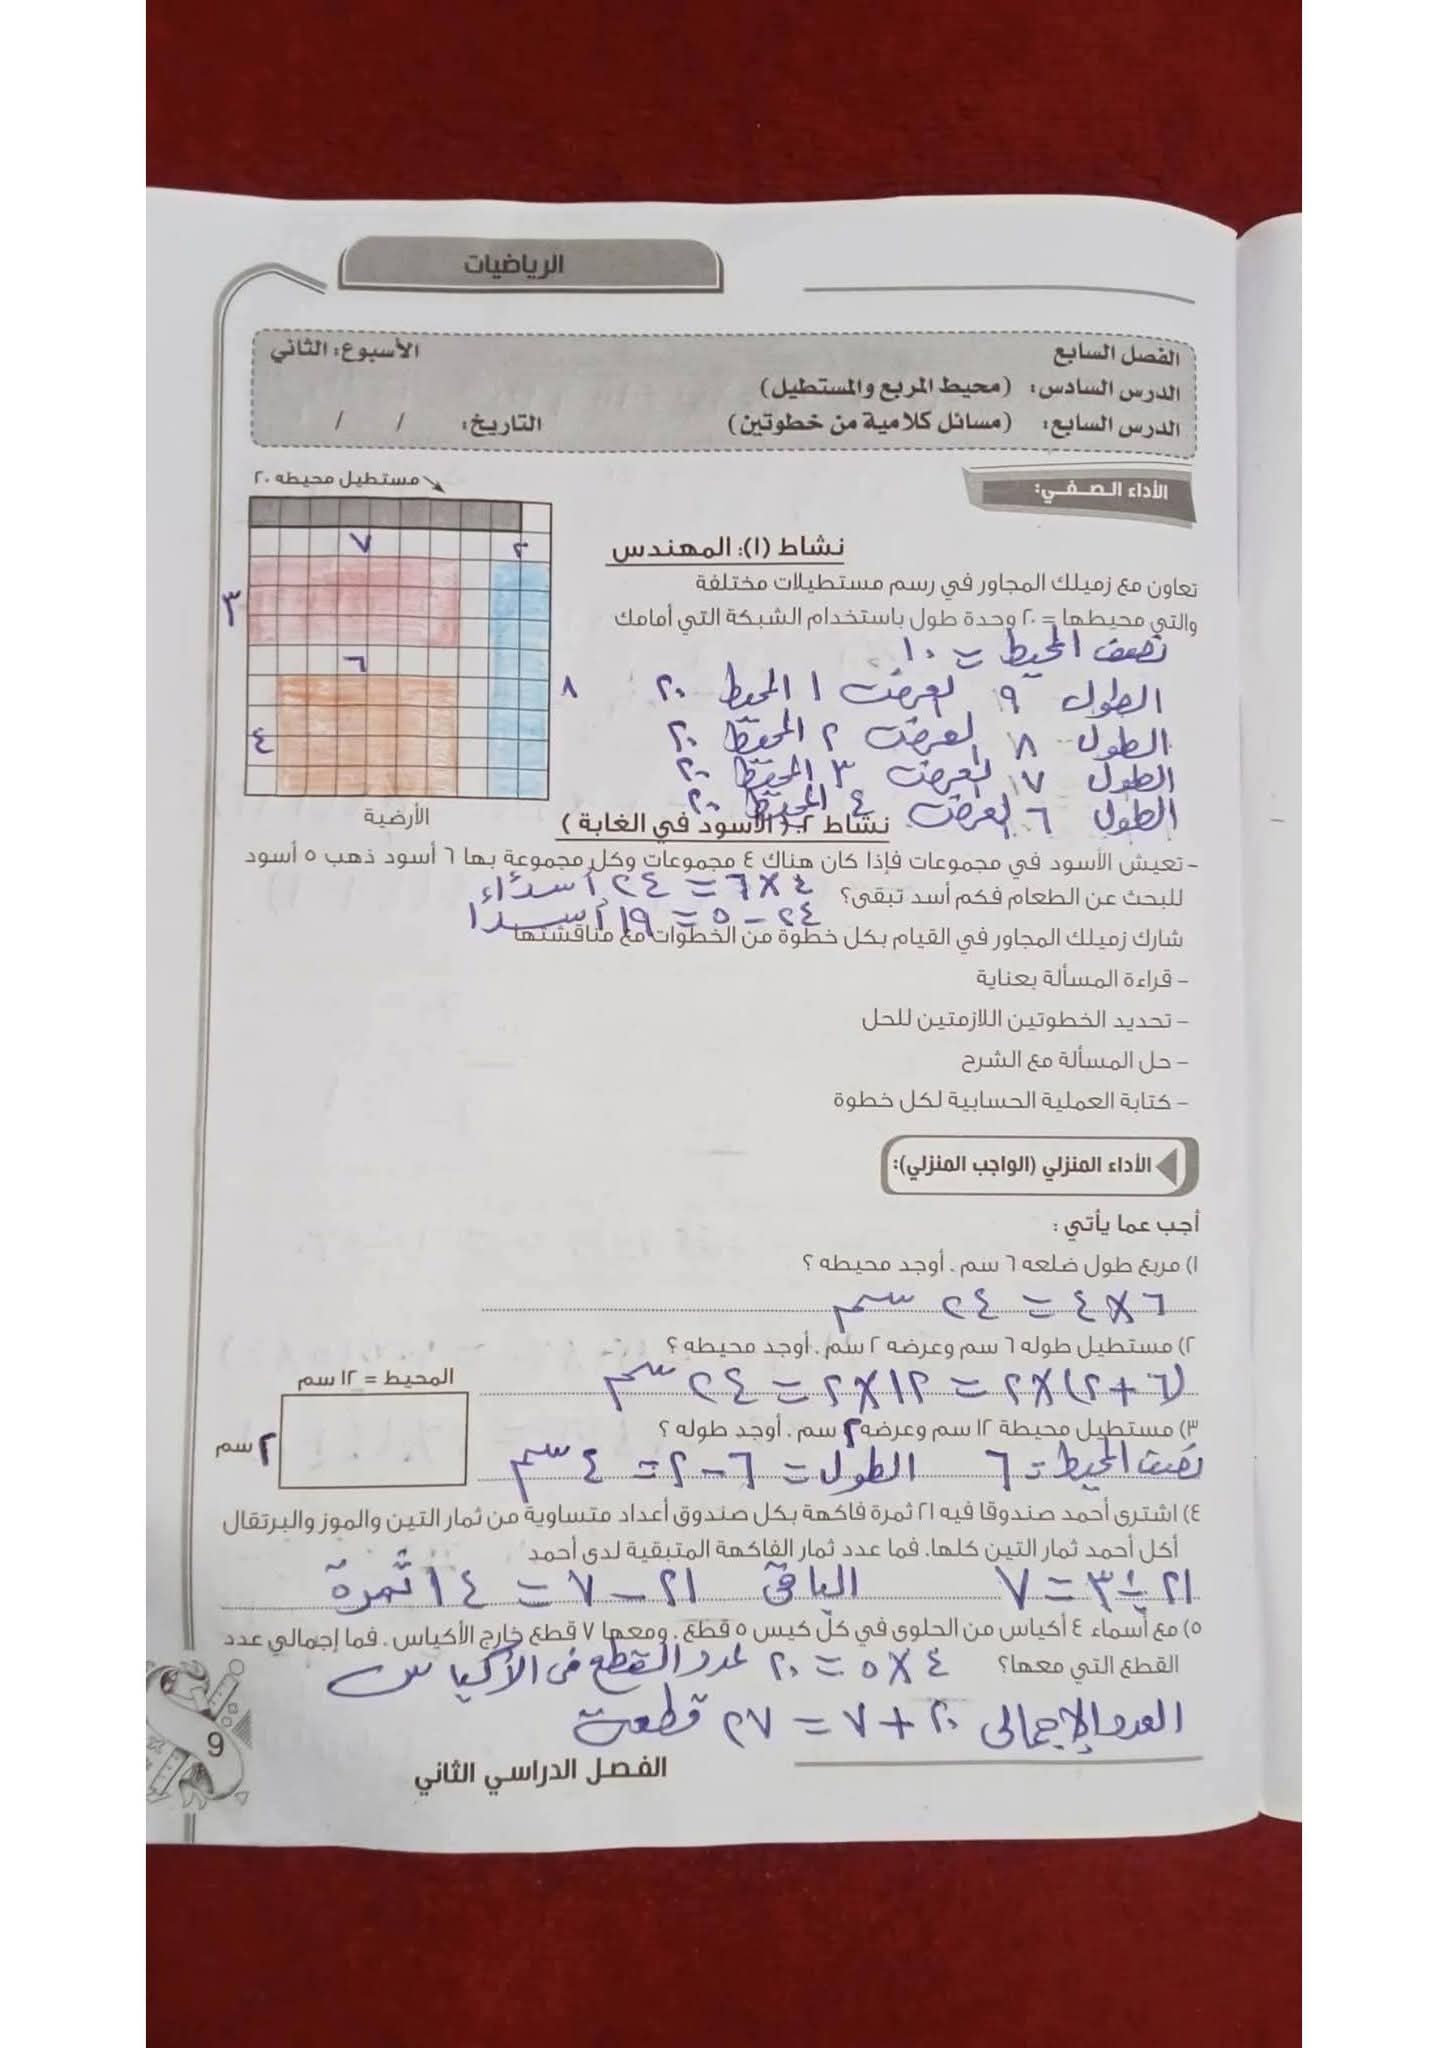 الرياضيات
الفصل السابع
الأسبوع: الثاني
الدرس السادس: (محيط المربع والمستطيل)
الدرس السابع: (مسائل كلامية من خطوتين)
التاريخ: / /
الأداء الصفي:
مستطيل محيطه ٢٠
٧
٢
٣
٦
٨
٤
الأرضية
نشاط (١): المهندس
تعاون مع زميلك المجاور في رسم مستطيلات مختلفة
والتي محيطها = ٢٠ وحدة طول باستخدام الشبكة التي أمامك
نصف المحيط = ١٠
الطول ٩ العرض ١ المحيط ٢٠
الطول ٨ العرض ٢ المحيط ٢٠
الطول ٧ العرض ٣ المحيط ٢٠
الطول ٦ العرض ٤ المحيط ٢٠
نشاط ٢: (الأسود في الغابة)
- تعيش الأسود في مجموعات فإذا كان هناك ٤ مجموعات وكل مجموعة بها ٦ أسود ذهب ٥ أسود
للبحث عن الطعام فكم أسد تبقى؟ ٤ × ٦ = ٢٤ أسداً
٢٤ - ٥ = ١٩ أسدا
شارك زميلك المجاور في القيام بكل خطوة من الخطوات مع مناقشتها
- قراءة المسألة بعناية
- تحديد الخطوتين اللازمتين للحل
- حل المسألة مع الشرح
- كتابة العملية الحسابية لكل خطوة
الأداء المنزلي (الواجب المنزلي):
أجب عما يأتي :
١) مربع طول ضلعه ٦ سم . أوجد محيطه ؟
٦ × ٤ = ٢٤ سم
٢) مستطيل طوله ٦ سم وعرضه ٢ سم . أوجد محيطه ؟
(٦ + ٢) × ٢ = ١٢ × ٢ = ٢٤ سم
المحيط = ١٢ سم
٢ سم
٣) مستطيل محيطة ١٢ سم وعرضه ٢ سم . أوجد طوله ؟
نصف المحيط = ٦ الطول = ٦ - ٢ = ٤ سم
٤) اشترى أحمد صندوقا فيه ٢١ ثمرة فاكهة بكل صندوق أعداد متساوية من ثمار التين والموز والبرتقال
أكل أحمد ثمار التين كلها. فما عدد ثمار الفاكهة المتبقية لدى أحمد
٢١ ÷ ٣ = ٧ الباقى ٢١ - ٧ = ١٤ ثمرة
٥) مع أسماء ٤ أكياس من الحلوى في كل كيس ٥ قطع . ومعها ٧ قطع خارج الأكياس . فما إجمالي عدد
القطع التي معها؟ ٤ × ٥ = ٢٠ عدد القطع فى الأكياس
العدد الإجمالى ٢٠ + ٧ = ٢٧ قطعة
الفصل الدراسي الثاني
9